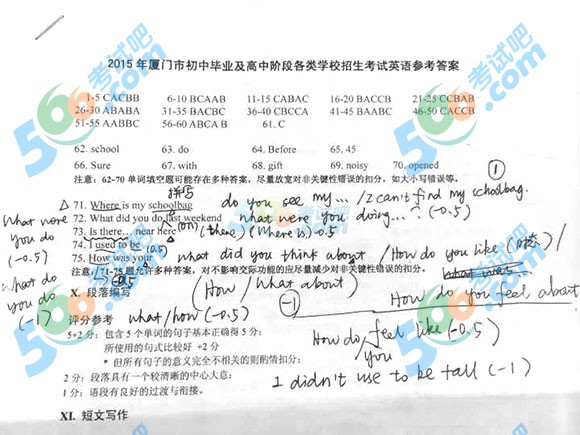 2015年厦门市初中毕业及高中阶段各类学校招生考试英语参考答案
1-5 CACBB 6-10 BCAAB 11-15 CABAC 16-20 BACCB 21-25 CCBAB
26-30 ABABA 31-35 BACBC 36-40 CBCCA 41-45 BAABC 46-50 CACCB
51-55 AABBC 56-60 ABCA B 61. C
62. school 63. do 64. Before 65. 45
66. Sure 67. with 68. gift 69. noisy 70. opened
注意：62-70 单词填空题可能存在多种答案，尽量放宽对非关键性错误的扣分，如大小写错误等。
①
拼写
△ 71. Where is my schoolbag do you see my... / I can't find my schoolbag.
72. What did you do last weekend what were you doing... (-0.5)
(on)
73. Is there... near here (there) (Where is) -0.5
74. I used to be
75. How was your what did you think about / How do you like
注意：71-75题允许多种答案，对不影响交际功能的应尽量减少对非关键性错误的扣分。
what were you do (-0.5)
what do you do (-1)
(How / What about)
How do you feel about
(-1)
X. 段落编写
评分参考 what/how (-0.5)
How do you feel like (-0.5)
5+2分：包含5个单词的句子基本正确得5分；
所使用的句式比较好 +2分
* 但所有句子的意义完全不相关的则酌情扣分；
I didn't use to be tall (-1)
2分：段落具有一个较清晰的中心大意；
1分：语段有良好的过渡与衔接。
XI. 短文写作
566考试吧
566考试吧
566考试吧